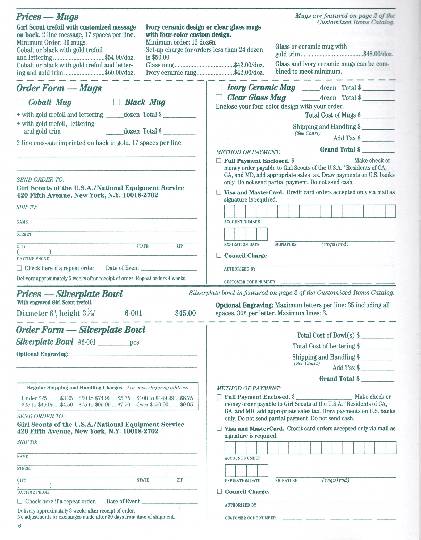 Prices — Mugs
Mugs are featured on page 2 of the
Customized Items Catalog.
Girl Scout trefoil with customized message
on back. 3 line message, 17 spaces per line.
Minimum Order:
Cobalt or black with gold trefoil
and lettering $54.00/doz.
Cobalt or black with gold trefoil and letter-
ing and gold trim $60.00/doz.
Ivory ceramic design or clear glass mugs
with four color custom design.
Minimum order: 12 dozen
Set-up charge for orders less than 24 dozen
is $50.00
Glass mug $42.00/doz.
Ivory ceramic mug $42.00/doz.
Glass or ceramic mug with
gold trim $48.00/doz.
Glass and ivory ceramic mugs can be com-
bined to meet minimum.
Order Form — Mugs
Cobalt Mug Black Mug
• with gold trefoil and lettering dozen Total $
• with gold trefoil, lettering
and gold trim dozen Total $
3 line message imprinted on back in gold, 17 spaces per line
SEND ORDER TO:
Girl Scouts of the U.S.A./National Equipment Service
420 Fifth Avenue, New York, N.Y. 10018-2702
SHIP TO:
NAME
STREET
CITY STATE ZIP
DAYTIME PHONE
Check here if a repeat order Date of Event
Ivory Ceramic Mug dozen Total $
Clear Glass Mug dozen Total $
Enclose your four color design with your order.
Total Cost of Mugs $
Shipping and Handling $
(See Chart)
Add Tax $
Grand Total $
METHOD OF PAYMENT:
Full Payment Enclosed $ Make check or
money order payable to Girl Scouts of the U.S.A. *Residents of CA,
GA, and MD, add appropriate sales tax. Draw payments on U.S. banks
only. Do not send partial payment. Do not send cash.
Visa and MasterCard. Credit card orders accepted only via mail as
signature is required.
ACCOUNT NUMBER
EXPIRATION DATE SIGNATURE (required)
Council Charge
AUTHORIZED BY
CUSTOMER CODE NUMBER
Prices — Silverplate Bowl
Silverplate bowl is featured on page 2 of the Customized Items Catalog.
With engraved Girl Scout trefoil
6-001 $45.00
Optional Engraving: Maximum letters per line: 35 including all
spaces. 30¢ per letter. Maximum lines: 3.
Order Form — Silverplate Bowl
Silverplate Bowl #6-001 pcs
Optional Engraving:
Regular Shipping and Handling Charges
SEND ORDER TO:
Girl Scouts of the U.S.A./National Equipment Service
420 Fifth Avenue, New York, N.Y. 10018-2702
SHIP TO:
NAME
STREET
CITY STATE ZIP
DAYTIME PHONE
Check here if a repeat order Date of Event
Delivery approximately 3 weeks after receipt of order.
No adjustments or exchanges made after 30 days from date of shipment.
6
Total Cost of Bowl(s) $
Total Cost of Lettering $
Shipping and Handling $
(See Chart)
Add Tax $
Grand Total $
METHOD OF PAYMENT:
Full Payment Enclosed $ Make check or
money order payable to Girl Scouts of the U.S.A. *Residents of CA,
GA, and MD, add appropriate sales tax. Draw payments on U.S. banks
only. Do not send partial payment. Do not send cash.
Visa and MasterCard. Credit card orders accepted only via mail as
signature is required.
ACCOUNT NUMBER
EXPIRATION DATE SIGNATURE (required)
Council Charge
AUTHORIZED BY
CUSTOMER CODE NUMBER